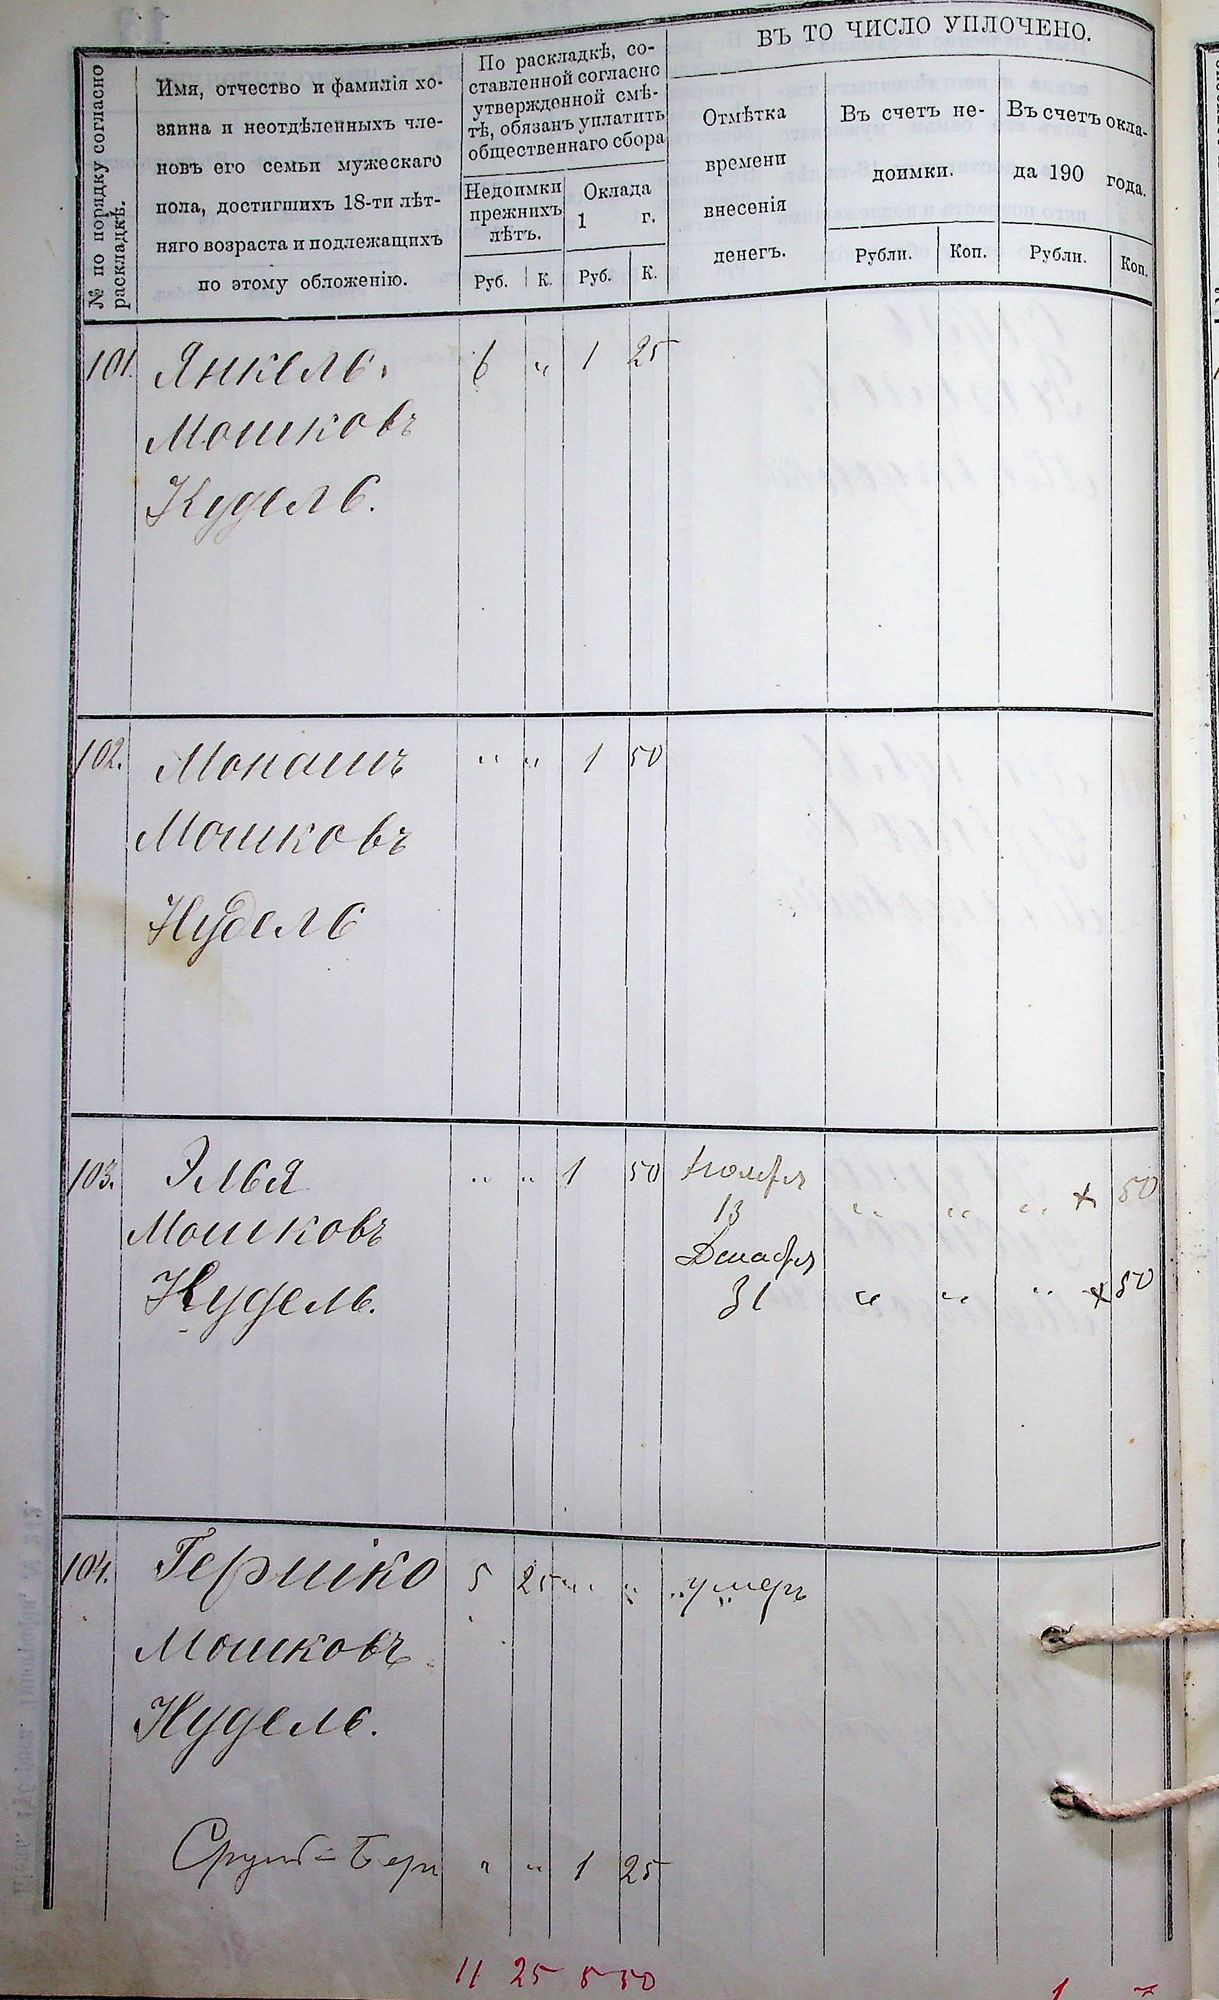 ВЪ ТО ЧИСЛО УПЛОЧЕНО.
№ по порядку согласно
раскладкѣ.
Имя, отчество и фамилія хо-
зяина и неотдѣленныхъ чле-
новъ его семьи мужескаго
пола, достигшихъ 18-ти лѣт-
няго возраста и подлежащихъ
по этому обложенію.
По раскладкѣ, со-
ставленной согласно
утвержденной смѣ-
тѣ, обязанъ уплатить
общественнаго сбора
Недоимки
прежнихъ
лѣтъ.
Оклада
1 г.
Руб. К. Руб. К.
Отмѣтка
времени
внесенія
денегъ.
Въ счетъ не-
доимки.
Рубли. Коп.
Въ счетъ окла-
да 190 года.
Рубли. Коп.
101. Янкель 6 " 1 25
Мошковъ
Нудель.
102. Монашъ " " 1 50
Мошковъ
Нудель
103. Элья " " 1 50 Ноября
13 " " " × 50
Мошковъ Декабря
Нудель. 31 " " " × 50
104. Гершко 5 25 " " умеръ
Мошковъ
Нудель.
Сруль-Бер " " 1 25
11 25 5 50 1